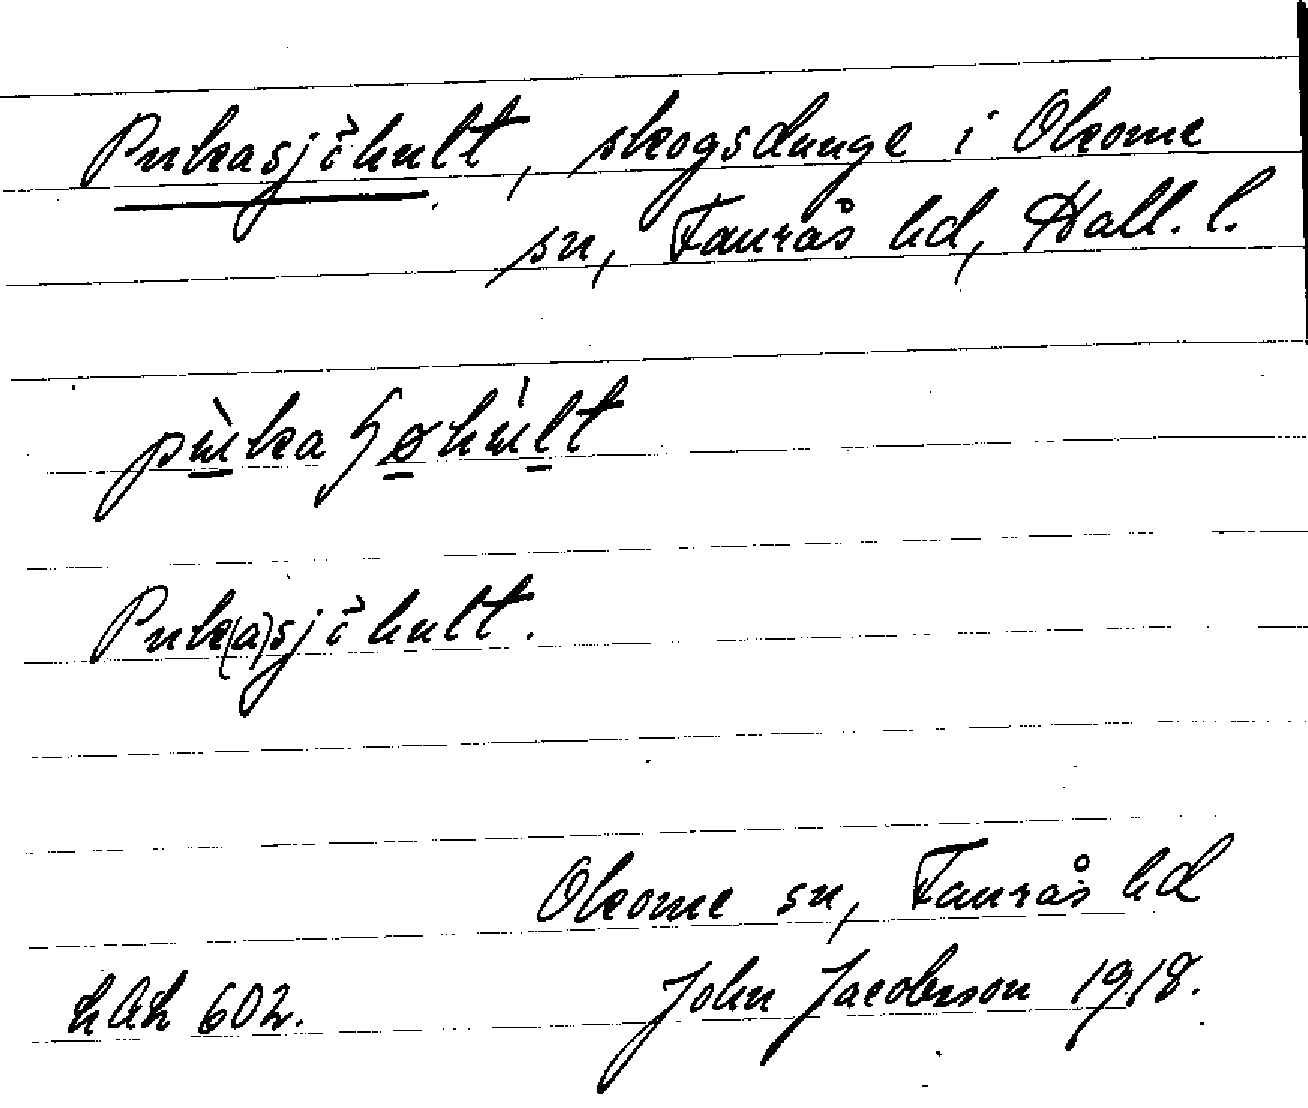 Pukasjöhult, skogsdunge i Okome
sn, Faurås hd, Hall. l.
Puk(a)sjöhult.
Okome sn, Faurås hd
John Jacobsson 1918.